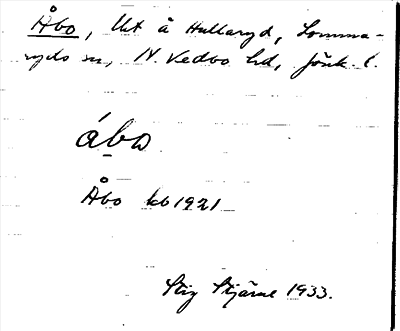 Åbo, lht å Hullaryd, Lomma-
ryds sn, N. Vedbo hd, Jönk. l.
ábo
Åbo kb 1921
Stig Stjärne 1933.